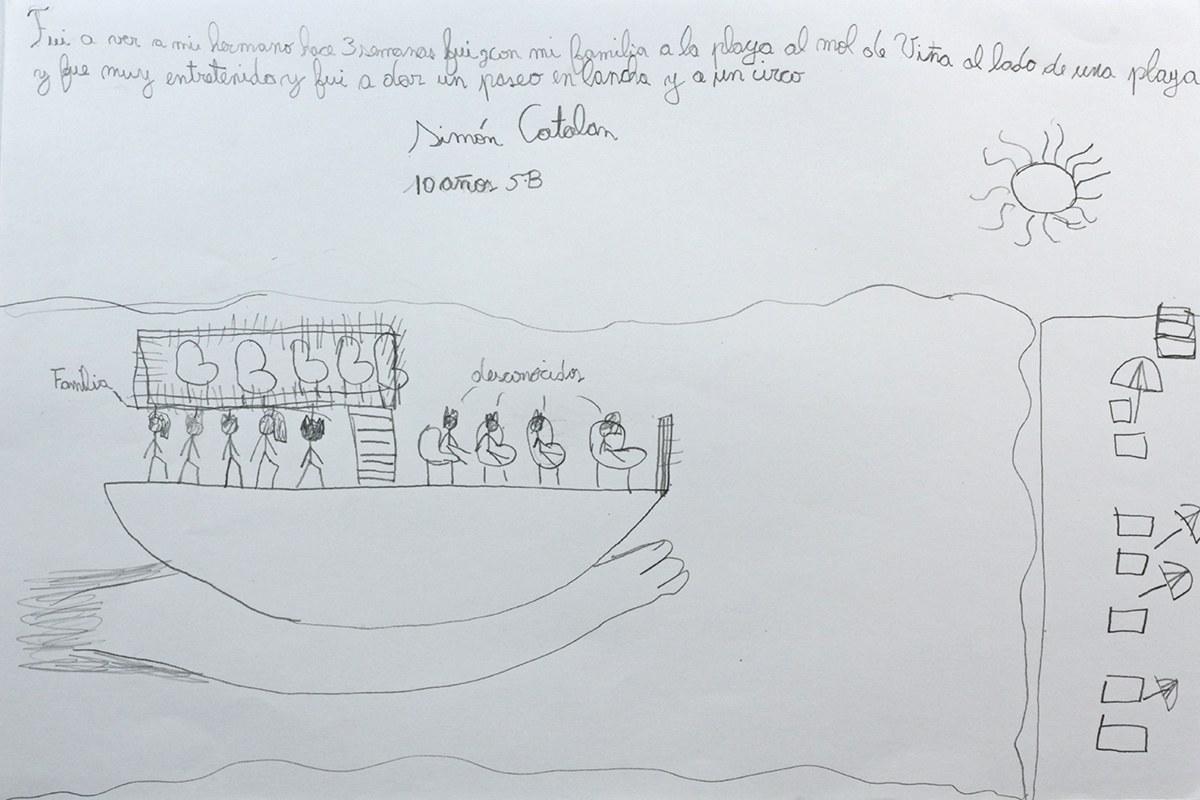 Fui a ver a mi hermano hace 3 semanas fui con mi familia a la playa al mol de Viña al lado de una playa
y fue muy entretenido y fui a dar un paseo en lancha y a un circo
Simón Catalan
10 años 5·B
Familia
desconocidos